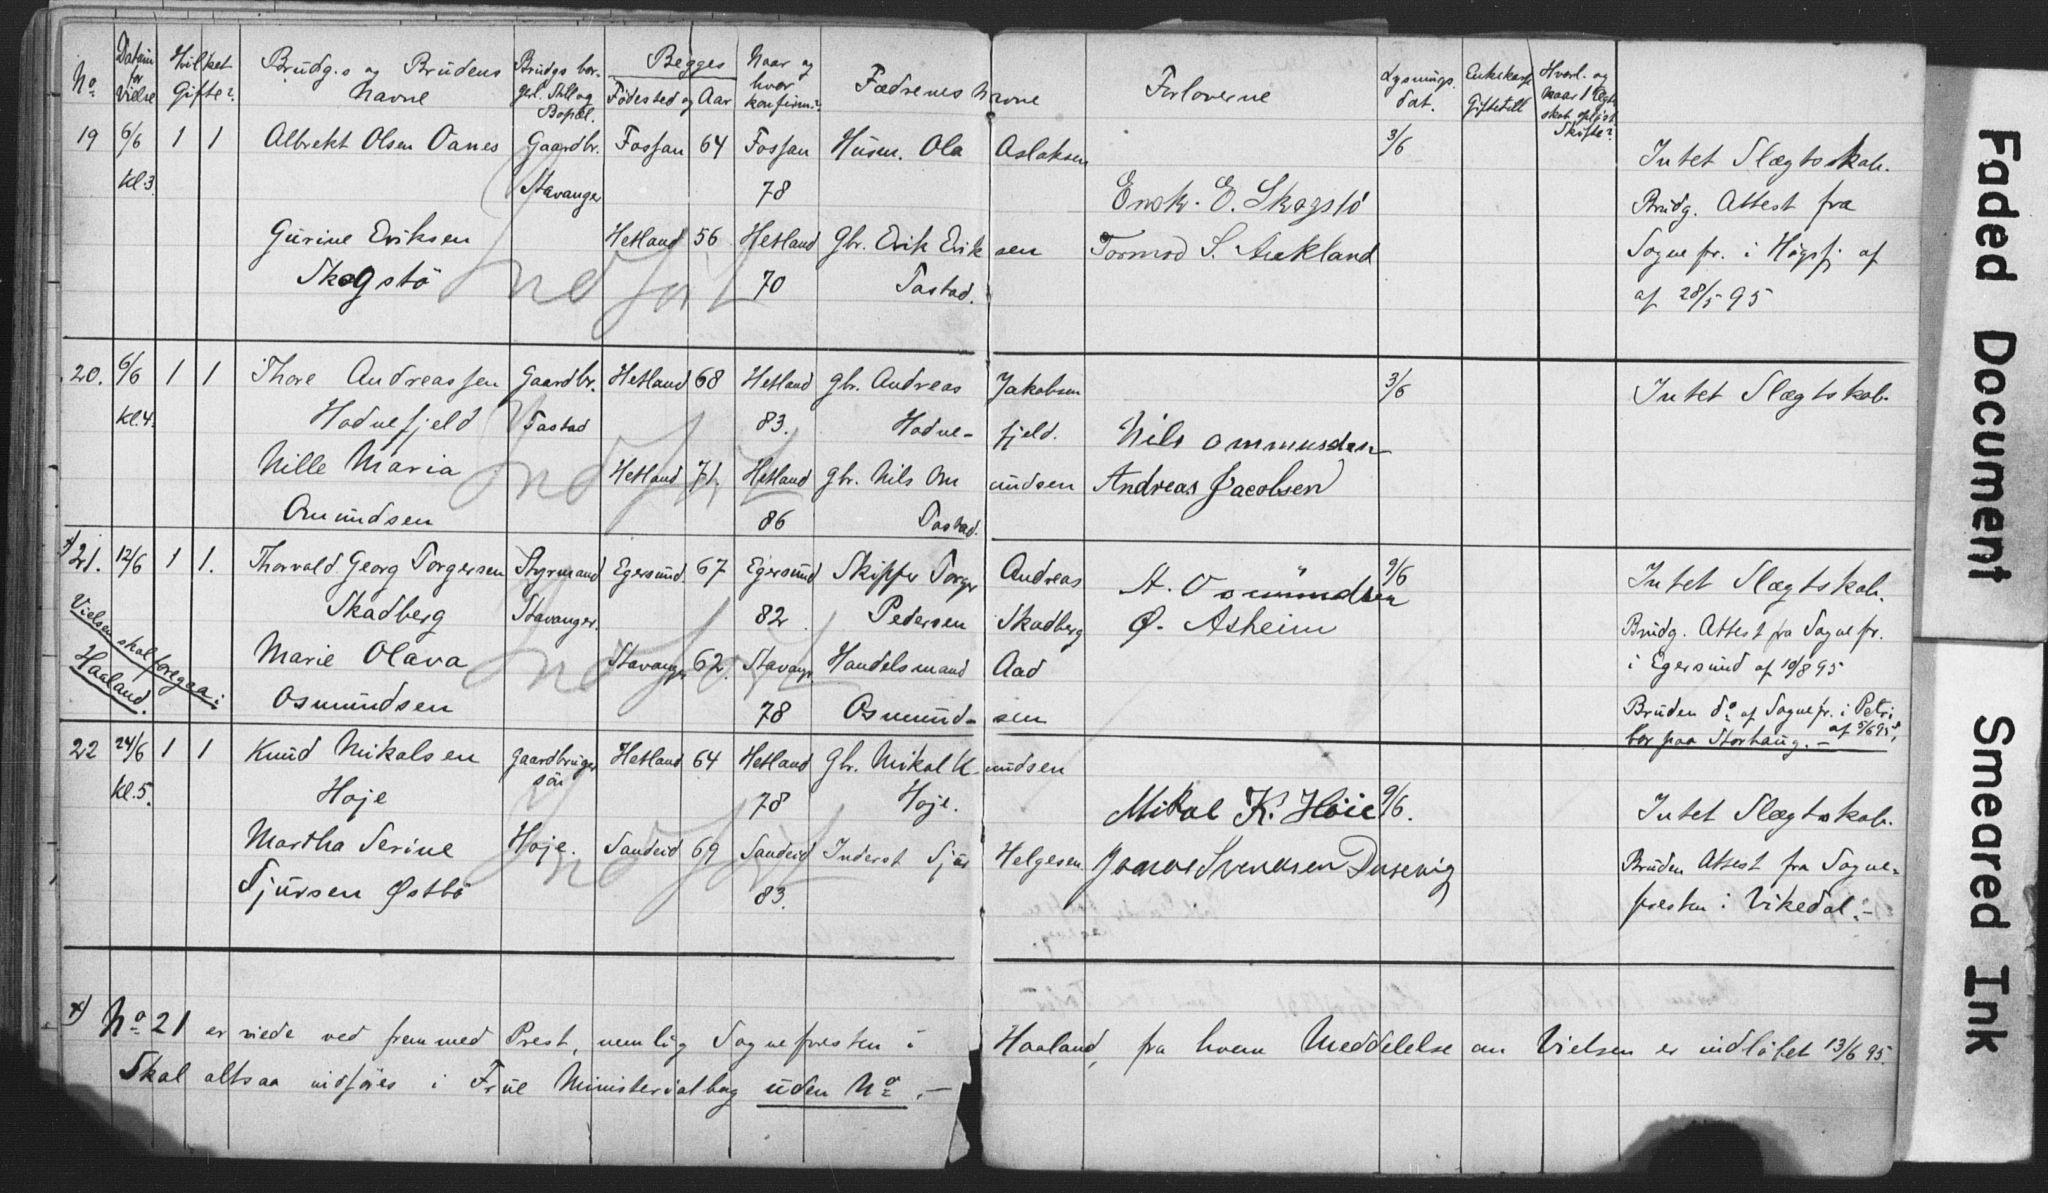 No Datum for Vielse Hvilket Gifte? Brudg.s og Brudens Navne Brudgs bor. gerl. Still og Bopæl. Begges Fødested og Aar Naar og hvor konfirm.? Fædrenes Navne Forloverne Lysnings dat. Giftetill Skifte?
19 6/6 1 1 Albrekt Olsen Oanes Gaardbr. Fossan 64 Fossan Husm. Ola Aslaksen 3/6 Intet Slægtsskab.
Kl.3. Stavanger 78 E. Skogstö Brudg. Attest fra
Gurine Eriksen Hetland 56 Hetland Gbr. Erik Eriksen Tormod S. Aukland Sognepr. i Høgsfj af
Skogstö 70 Tastad. af 28/5 95
Indført
20. 6/6 1 1 Thore Andreassen Gaardbr. Hetland 68 Hetland gbr. Andreas Jakobsen 3/6 Intet Slægtskab.
Kl.4. Hodnefjeld Tastad 83. Hodne- fjeld. Nils ommundsen
Nille Maria Hetland 71. Hetland gbr. Nils Omundsen Andreas Jacobsen
Omundsen 86 Tastad.
Indført
x) 21. 12/6 1 1. Thorvald Georg Torgersen Styrmand Egersund 67 Egersund Skipper Torger Andreas A. Osmundsen 9/6 Intet Slægtskab.
Vielsen skal foregaa i Haaland. Skadberg Stavanger. 82 Pedersen Skadberg Ø. Asheim Brudg. Attest fra Sognepr.
Marie Olava Stavanger 62. Stavang. Handelsmand Aad i Egersund af 10/8 95
Osmundsen 78 Osmund- sen Bruden do af Sognepr. i Petri af 5/6 95,
bor paa Storhaug. –
Indført
22 24/6 1 1 Knud Mikalsen Gaardbruger sön Hetland 64 Hetland Gbr. Mikal Knudsen
Kl.5. Hoje 78 Hoje. Mikal K. Höie 9/6. Intet Slægtskab.
Martha Serine Hoje. Sandeid 69 Sandeid Inderst Tjør Helgesen Svendsen Dusevig Bruden Attest fra Sogne-
Tjursen Østbö 83. presten i Vikedal. –
Indført
x) No 21 er viede ved fremmed Prest, nemlig Sognepresten i Haaland, fra hvem Meddelelse om Vielsen er indløbet 13/6 95.
Skal altsaa indføres i Frue Ministerialbog uden No. –
Faded Document
Smeared Ink